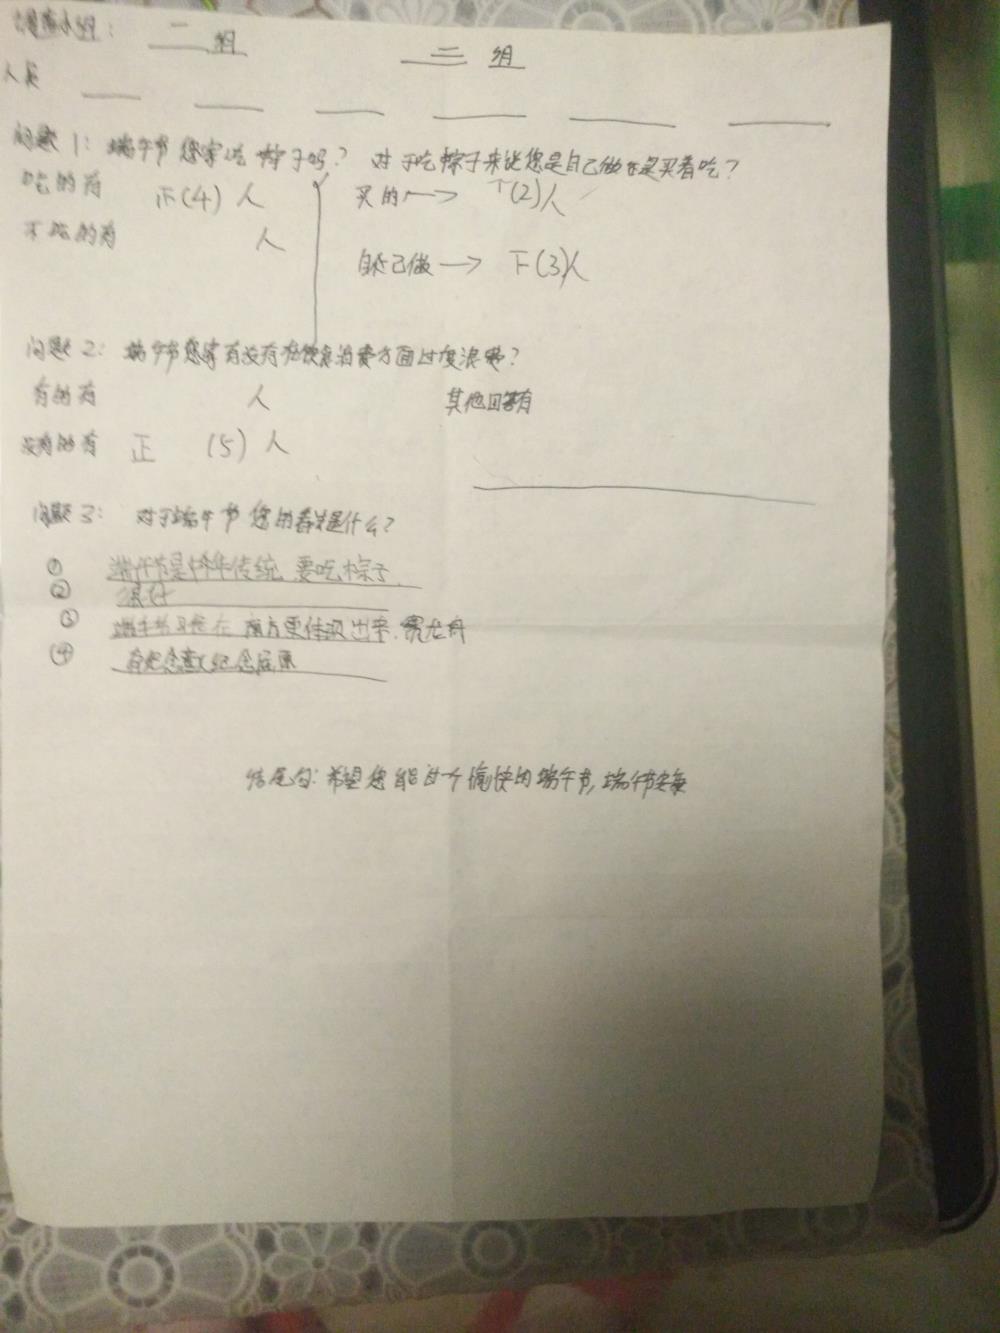 调查小组： 二组 三组
人员
问题1：端午节您家吃粽子吗？ 对于吃粽子来说您是自己做还是买着吃？
吃的有 (4)人 买的→ (2)人
不吃的有 人
自己做→ 下(3)人
问题2：端午节您家有没有在饮食消费方面过度浪费？
有的有 人 其他回答有
没有的有 正 (5)人
问题3： 对于端午节您的看法是什么？
① 端午节是中华传统，要吃粽子
② 很好
③ 端午节 在南方更体现出来，赛龙舟
④ 有纪念意义纪念屈原
结尾句：希望您能过个愉快的端午节，端午节安康